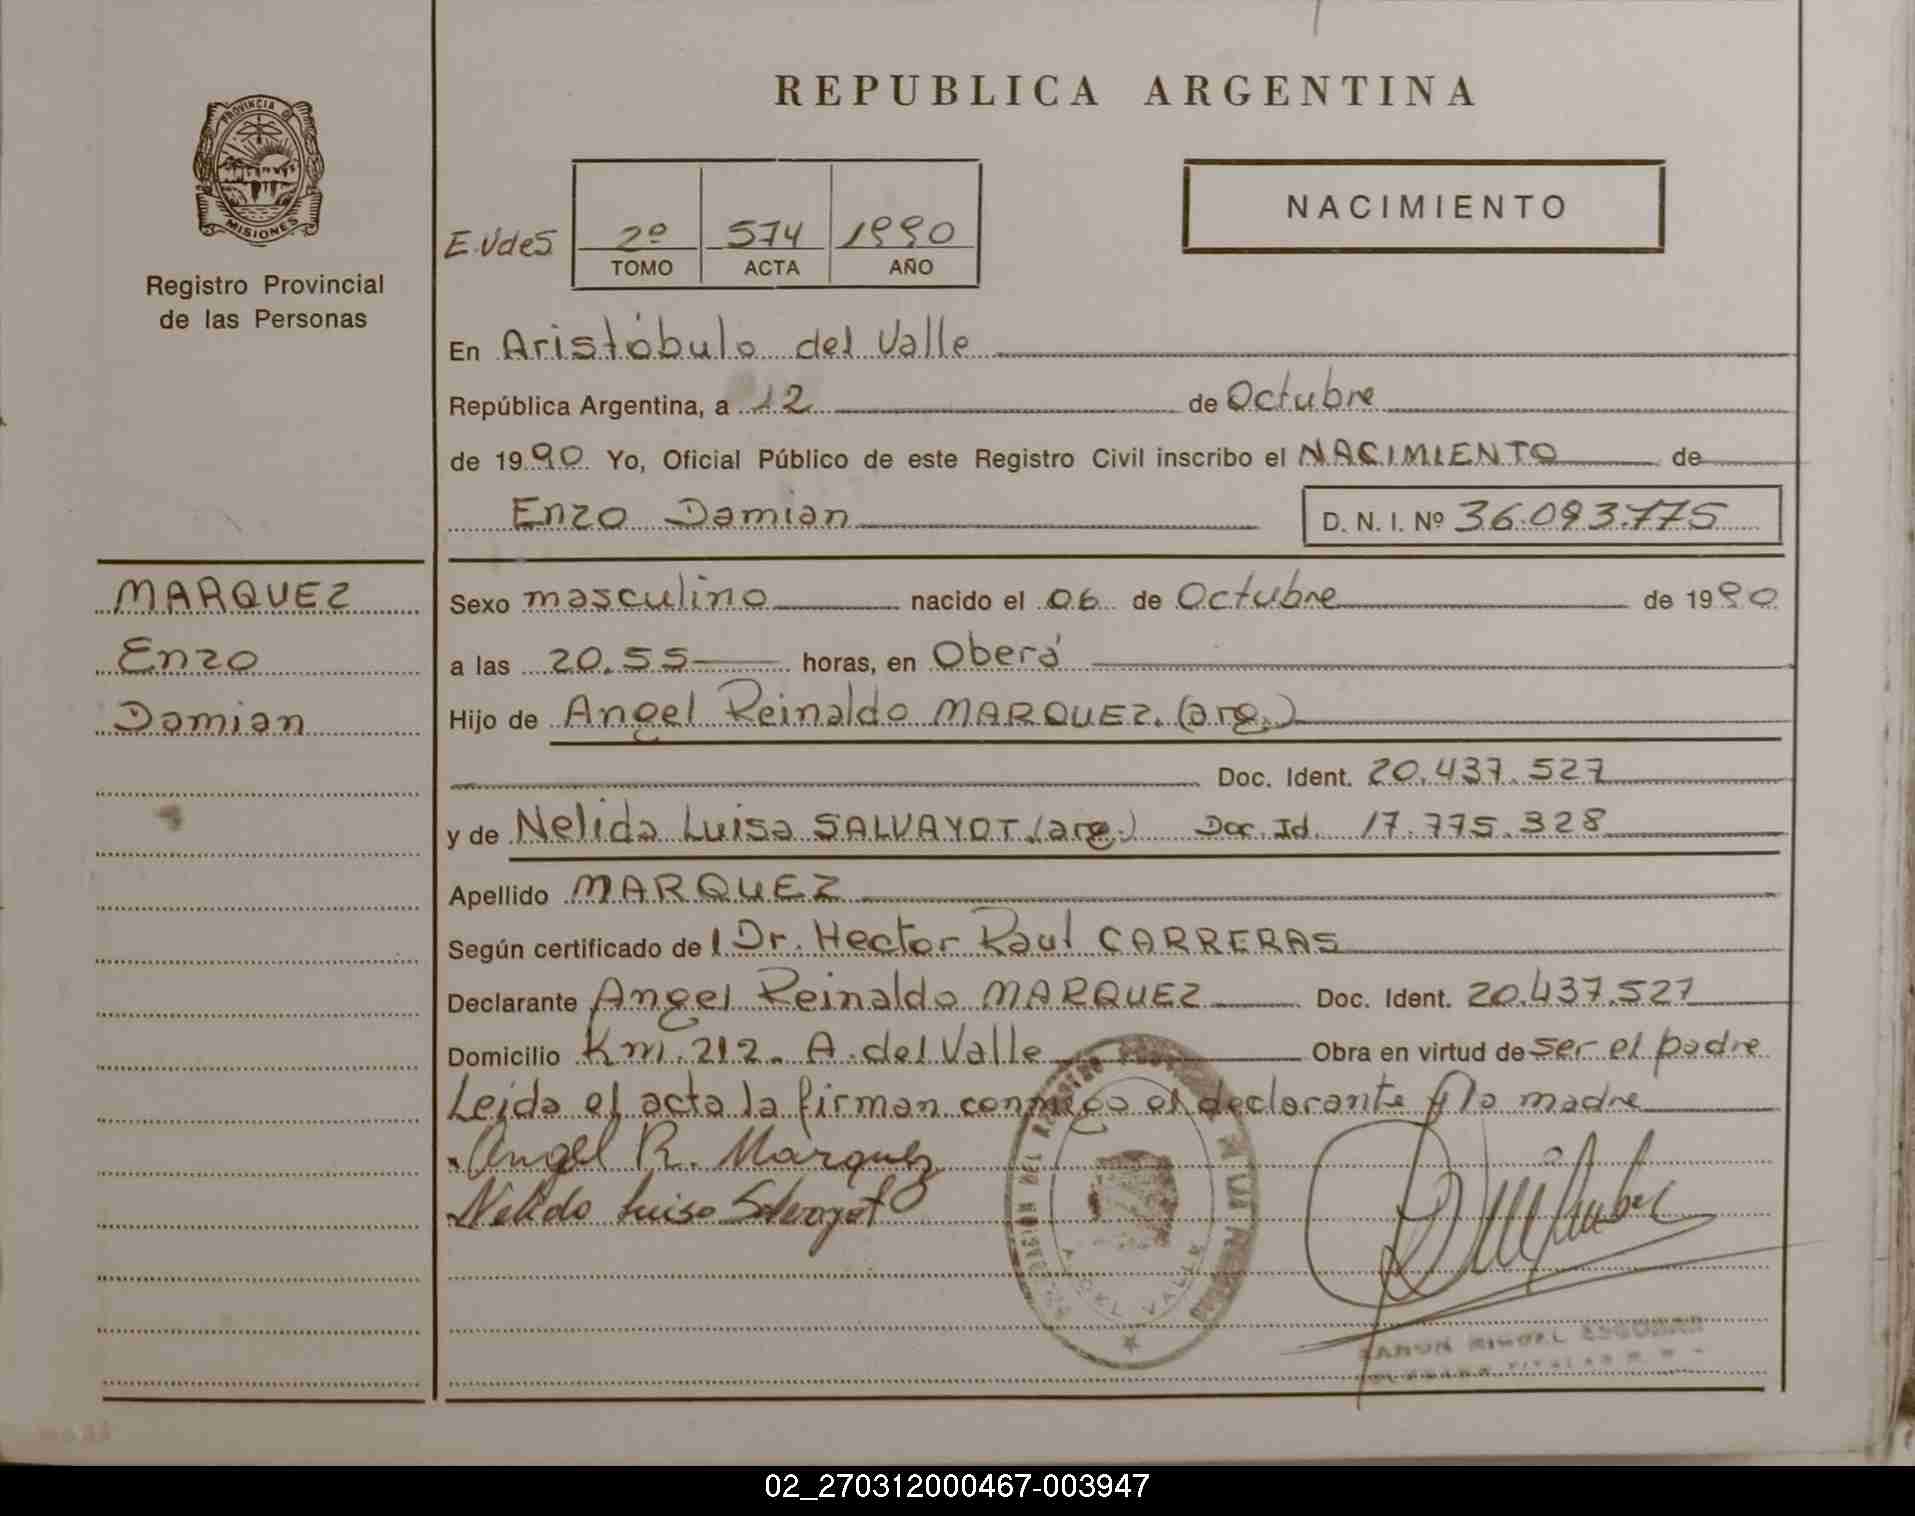 REPUBLICA ARGENTINA
PROVINCIA DE
MISIONES
Registro Provincial
de las Personas
NACIMIENTO
E.Vdes 2º 574 1990
TOMO ACTA AÑO
En Aristóbulo del Valle
República Argentina, a 12 de Octubre
de 1990 Yo, Oficial Público de este Registro Civil inscribo el NACIMIENTO de
Enzo Damian D. N. I. Nº 36.093.775
MARQUEZ
Enzo
Damian
Sexo masculino nacido el 06 de Octubre de 1990
a las 20.55 horas, en Oberá
Hijo de Angel Reinaldo MARQUEZ. (arg.)
Doc. Ident. 20.437.527
y de Nelida Luisa SALVAYOT.(arg.) Doc. Id. 17.775.328
Apellido MARQUEZ
Según certificado de l Dr. Hector Raul CARRERAS
Declarante Angel Reinaldo MARQUEZ Doc. Ident. 20.437.527
Domicilio Km. 212. A. del Valle Obra en virtud de ser el padre
Leida el acta la firman conmigo el declarante y la madre
Angel R. Marquez
Nelida Luisa Salvayot
A. DEL VALLE
RAMON MIGUEL ESCOBAR
02_270312000467-003947